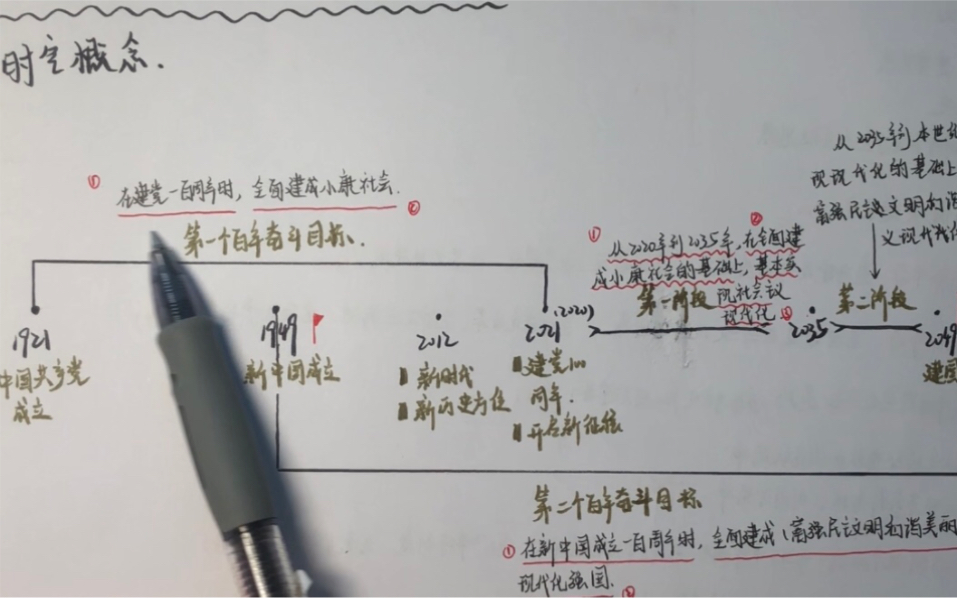 时空概念.
① 在建党一百周年时, 全面建成小康社会. ②
第一个百年奋斗目标.
从2035年到本世纪
现现代化的基础上
富强民主文明和谐
义现代化
① 从2020年到2035年, ② 在全面建
成小康社会的基础上, 基本实
现社会主义
现代化 ③
第一阶段
第二阶段
1921
中国共产党
成立
1949
新中国成立
2012
新时代
新历史方位
2021 (2020)
建党100
周年.
开启新征程
2035
2049
建国
第二个百年奋斗目标
① 在新中国成立一百周年时, 全面建成(富强民主文明和谐美丽
现代化强国. ②